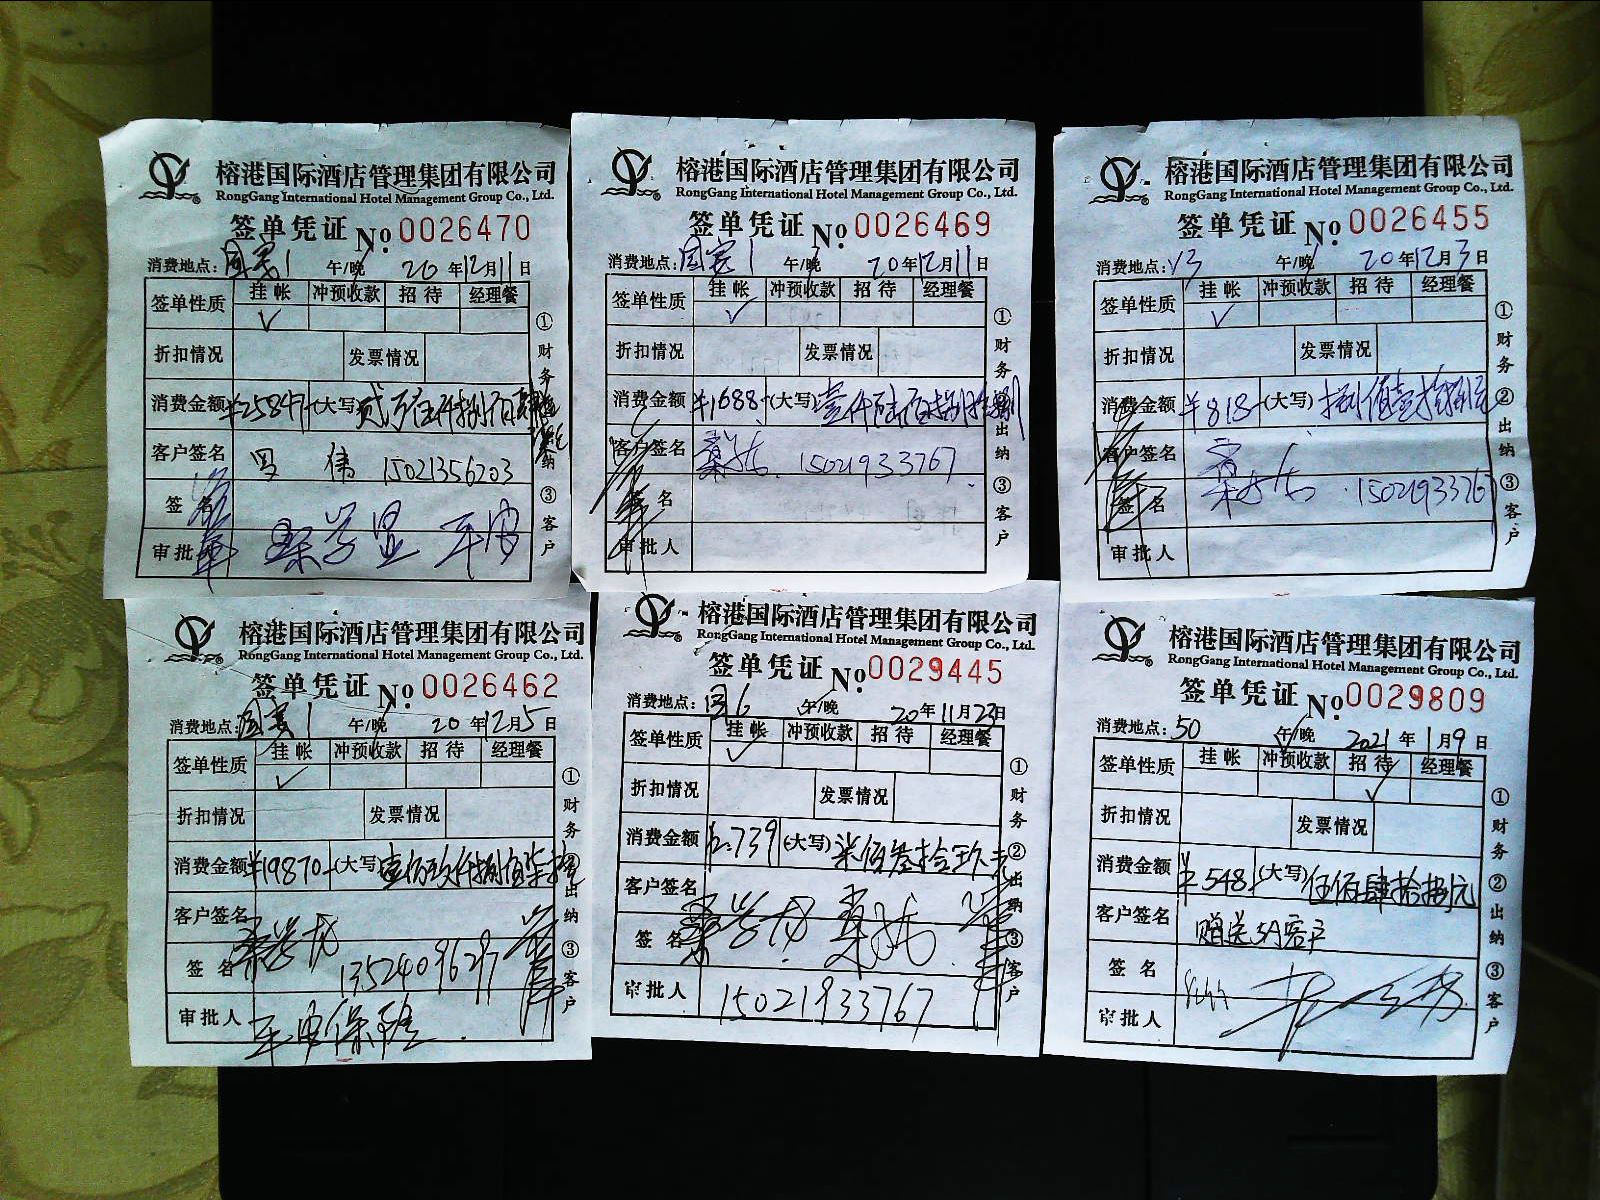 榕港国际酒店管理集团有限公司
RongGang International Hotel Management Group Co., Ltd.
签单凭证 No. 0026470
消费地点: 国宾1 午/晚 20年12月11日
签单性质 挂帐 冲预收款 招待 经理餐
✓
折扣情况 发票情况
消费金额 ¥25847 (大写) 贰万伍仟捌佰肆拾
客户签名 罗伟 15021356203
签名
审批 平安
①财务 ②出纳 ③客户
榕港国际酒店管理集团有限公司
RongGang International Hotel Management Group Co., Ltd.
签单凭证 No. 0026469
消费地点: 国宾1 午/晚 20年12月11日
签单性质 挂帐 冲预收款 招待 经理餐
✓
折扣情况 发票情况
消费金额 ¥1688- (大写) 壹仟陆佰捌拾捌
客户签名 15021933767
签名
审批人
①财务 ②出纳 ③客户
榕港国际酒店管理集团有限公司
RongGang International Hotel Management Group Co., Ltd.
签单凭证 No. 0026455
消费地点: V3 午/晚 20年12月3日
签单性质 挂帐 冲预收款 招待 经理餐
✓
折扣情况 发票情况
消费金额 ¥818- (大写) 捌佰壹拾捌元
客户签名
签名 15021933767
审批人
①财务 ②出纳 ③客户
榕港国际酒店管理集团有限公司
RongGang International Hotel Management Group Co., Ltd.
签单凭证 No. 0026462
消费地点: 国宾1 午/晚 20年12月5日
签单性质 挂帐 冲预收款 招待 经理餐
✓
折扣情况 发票情况
消费金额 ¥19870- (大写) 壹万玖仟捌佰柒拾
客户签名
签名 13524096297
审批人 平安保险
①财务 ②出纳 ③客户
榕港国际酒店管理集团有限公司
RongGang International Hotel Management Group Co., Ltd.
签单凭证 No. 0029445
消费地点: 国6 午/晚 20年11月23日
签单性质 挂帐 冲预收款 招待 经理餐
✓
折扣情况 发票情况
消费金额 739 (大写) 柒佰叁拾玖元
客户签名
签名
审批人 15021933767
①财务 ②出纳 ③客户
榕港国际酒店管理集团有限公司
RongGang International Hotel Management Group Co., Ltd.
签单凭证 No. 0029809
消费地点: 50 午/晚 2021年1月9日
签单性质 挂帐 冲预收款 招待 经理餐
✓
折扣情况 发票情况
消费金额 ¥548- (大写) 伍佰肆拾捌元
客户签名 赠送5A客户
签名
审批人
①财务 ②出纳 ③客户